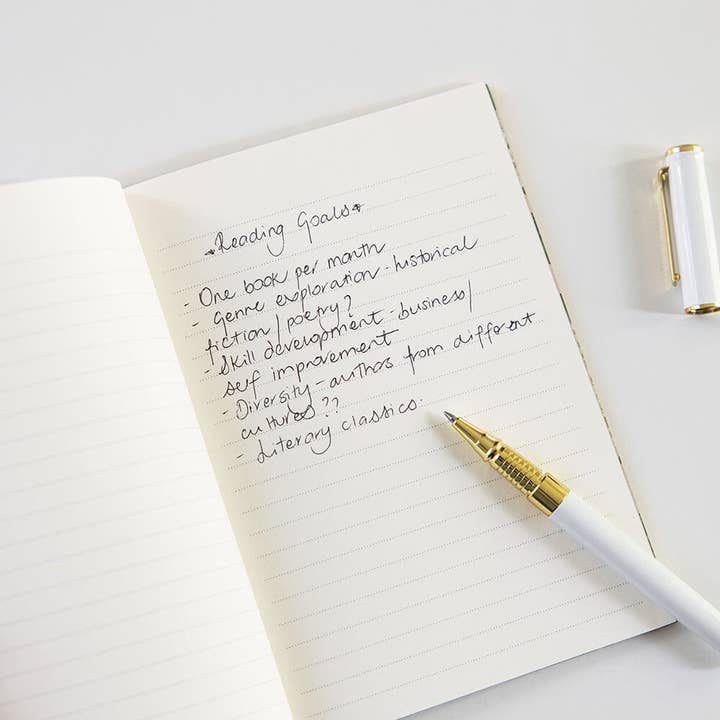 *Reading Goals*
- One book per month
- Genre exploration - historical
fiction / poetry?
- Skill development - business/
self improvement
- Diversity - authors from different
cultures??
- Literary classics.